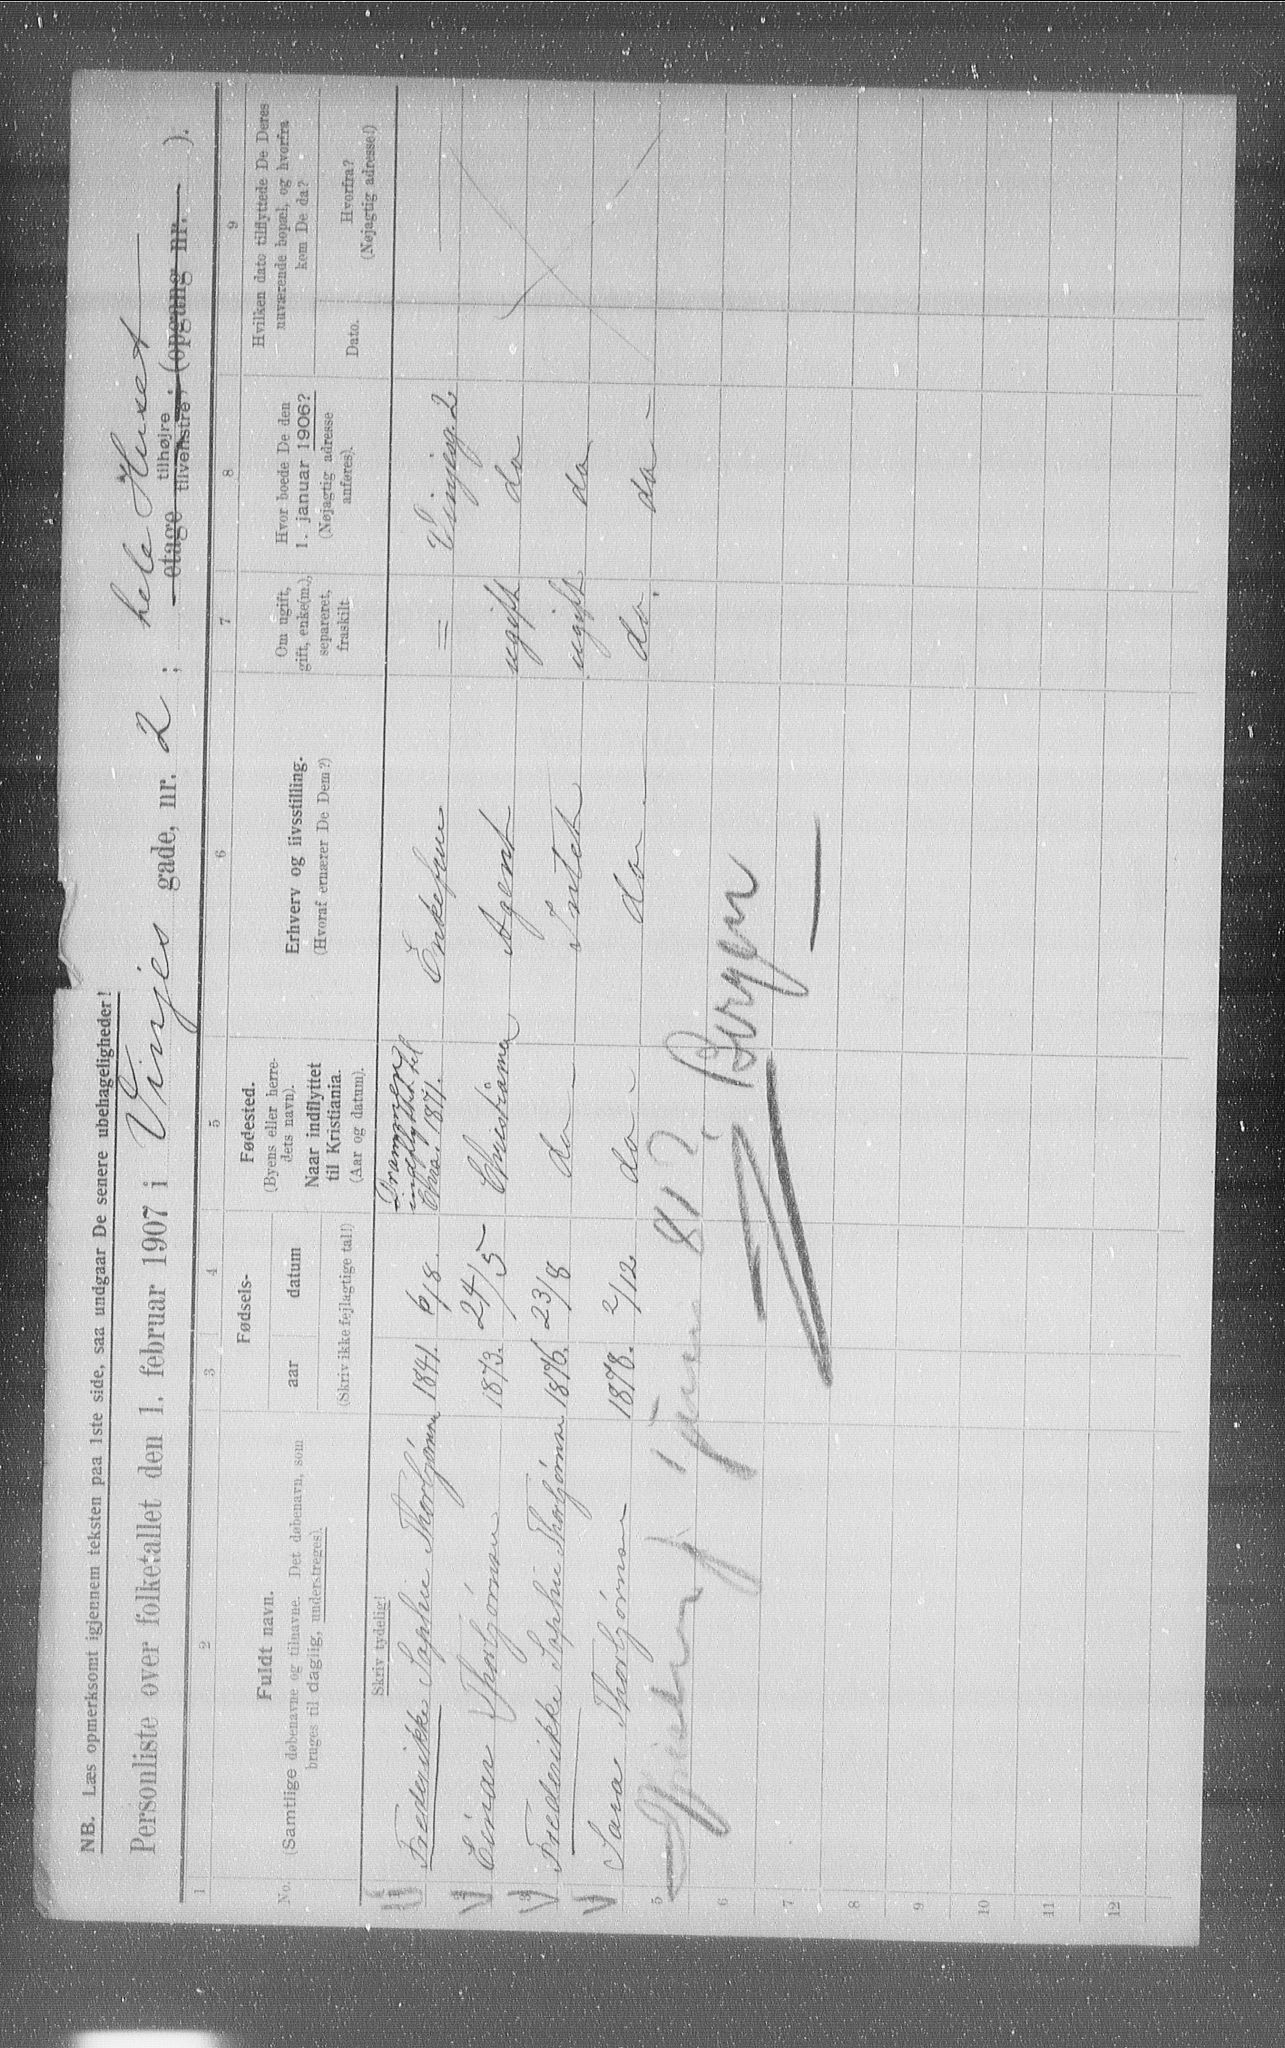 NB. Læs opmerksomt igjennem teksten paa 1ste side, saa undgaar De senere ubehageligheder!
Personliste over folketallet den 1. februar 1907 i Vinjes gade, nr. 2 ; hele Huset
etage tilhøjre tilvenstre, (opgang nr. ).
1 2 3 4 5 6 7 8 9
No.
Fuldt navn.
(Samtlige døbenavne og tilnavne. Det døbenavn, som
bruges til daglig, understreges).
Fødsels-
aar datum
(Skriv ikke fejlagtige tal!)
Fødested.
(Byens eller herre-
dets navn).
Naar indflyttet
til Kristiania.
(Aar og datum).
Erhverv og livsstilling.
(Hvoraf ernærer De Dem?)
Om ugift,
gift, enke(m.),
separeret,
fraskilt
Hvor boede De den
1. januar 1906?
(Nøjagtig adresse
anføres).
Hvilken dato tilflyttede De Deres
nuværende bopæl, og hvorfra
kom De da?
Dato.
Hvorfra?
(Nøjagtig adresse!)
Skriv tydelig!
Frederikke Sophie Thorbjörnsen 1841. 6/8. Drammen indflyttet til Chra. 1871. Enkefrue = Vinjesg. 2
2 Einar Thorbjörnsen 1873. 24/5 Christiania Agent ugift do
3 Frederikke Sophie Thorbjörnsen 1876. 23/8 do Intet ugift do
Sara Thorbjörnsen 1878. 2/12 do do do. do
5
6 Bergen
7
8
9
10
11
12